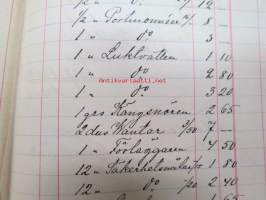 1/2 " 12
1/2 " Portmonnän 8 —
1 " do 3 —
1 " Luktvatten 1 10
1 " do 2 80
1 " do 3 20
1 grs Hängsnören 2 65
2 dus Vantar 3/50 7 —
1 " Förläggaren 4 50
12 " Säkerhetsnålar 1 80
12 " do /20 2 40
2 65
antikvariaatti.net